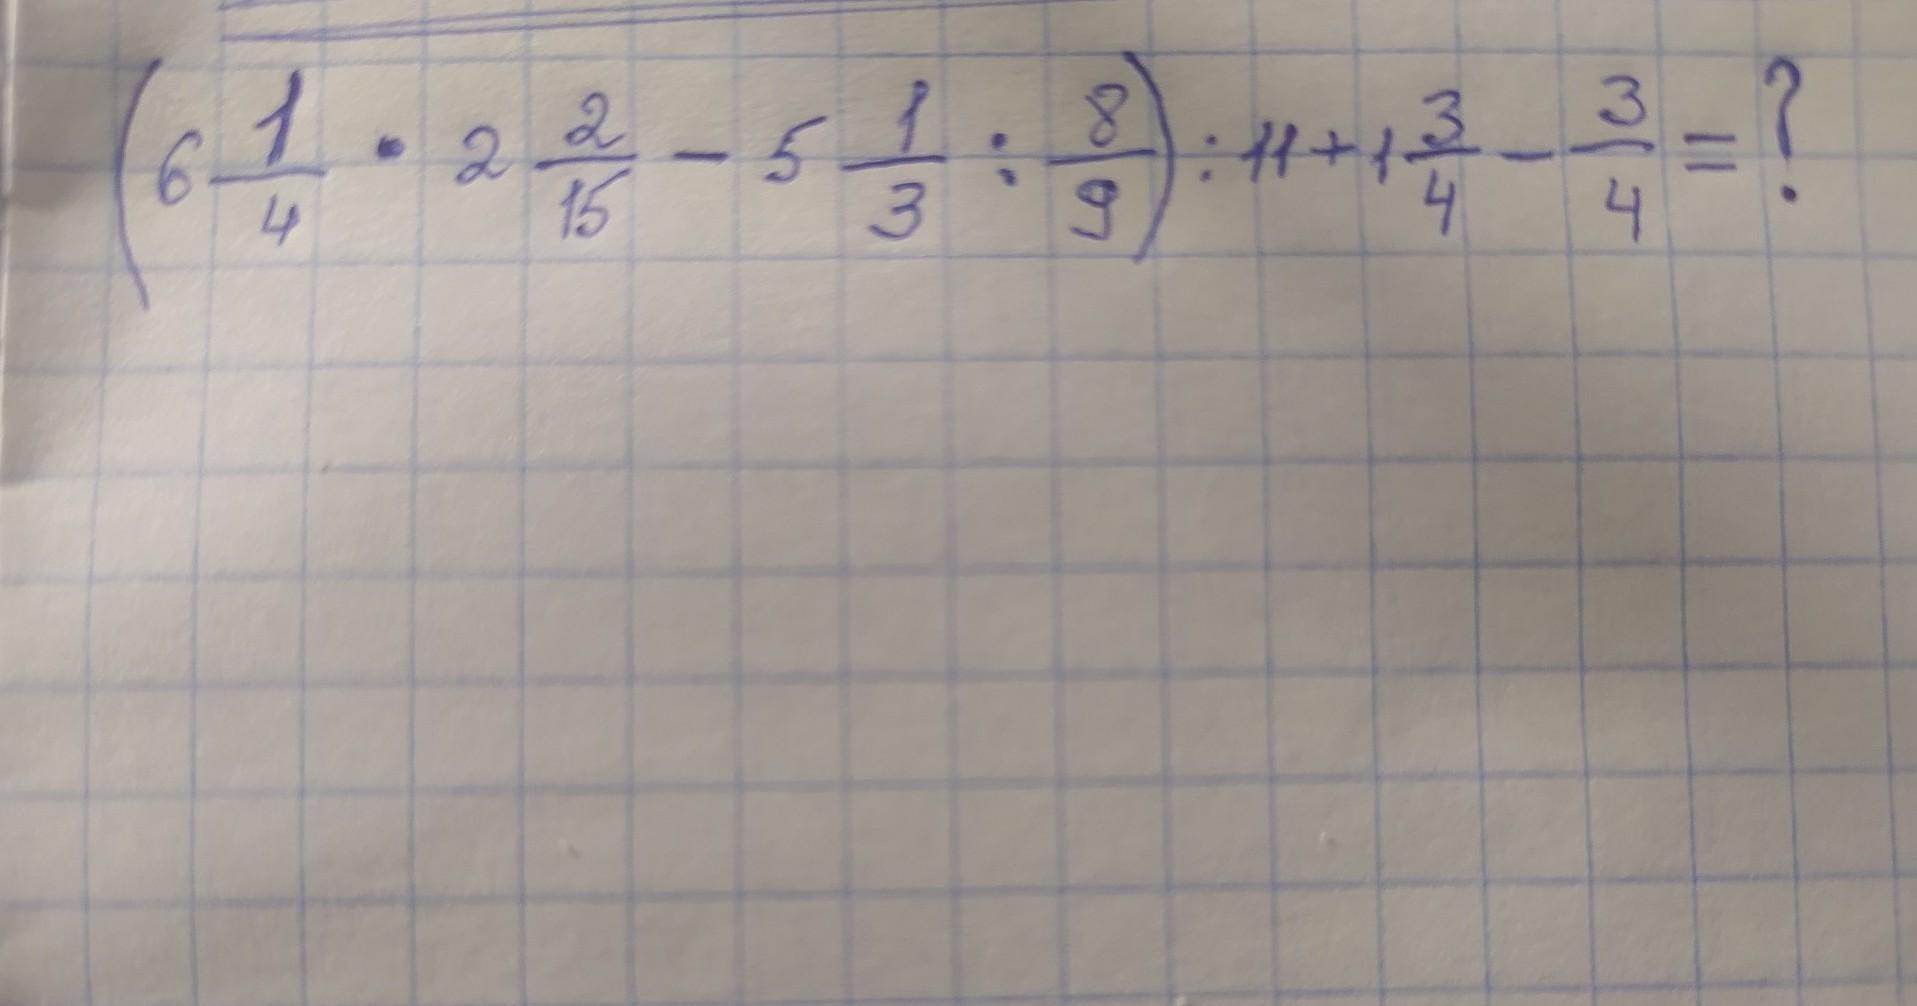 (6 1/4 · 2 2/15 - 5 1/3 : 8/9) : 11 + 1 3/4 - 3/4 = ?